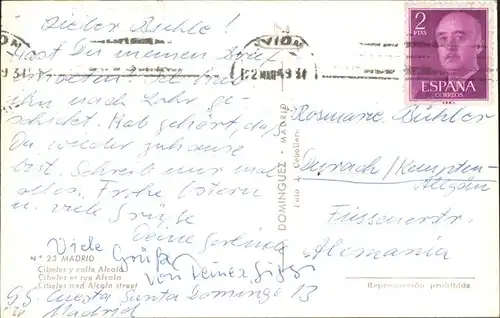 Lieber Buhle!
Hast Du meinen Brief
erhalten? Ich hab
ihn nach Lahr ge-
schickt. Hab gehört, daß
Du wieder zuhause
bist. Schreib mir mal
alles. Frohe Ostern
u. viele Grüße
Deine
Viele
Grüße
von Deiner
G.G. Cuesta Santo Domingo 13
Madrid
N° 23 MADRID
Cibeles y calle Alcalá
Cibeles et rue Alcala
Cibeles and Alcala street
DOMINGUEZ - MADRID
AVION
2
PTAS
ESPAÑA
CORREOS
Rosmarie Bühler
Durach/Kempten
Allgäu
Füssenerstr.
Alemania
Reproducción prohibida